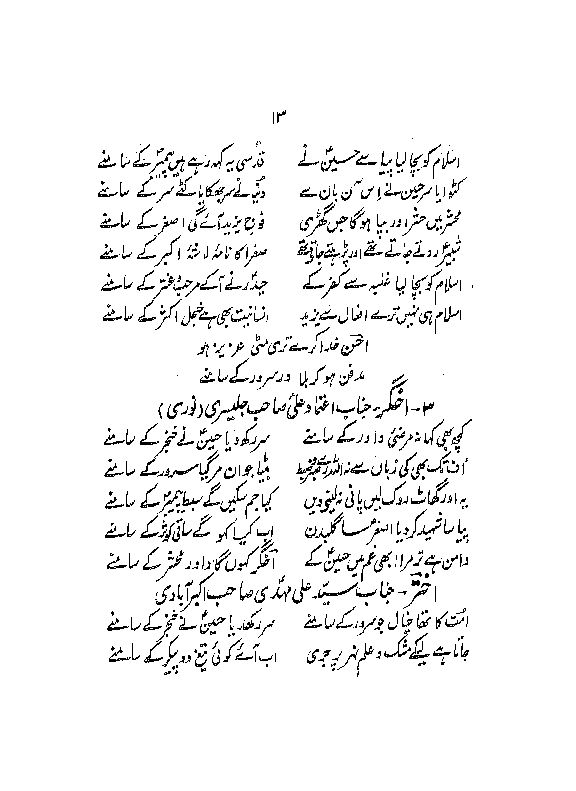 ۱۳
اسلام کو بچا لیا پیاسے حسینؑ نے قدسی یہ کہہ رہے ہیں پیمبرؐ کے سامنے
کٹوایا سر حسین نے اس بان سے دنیا نے سر جھکایا کٹے سر کے سامنے
محشر میں حشر اور بپا ہوگا جس گھڑی فوج یزید آئے گی اصغر کے سامنے
شبیرؑ روتے جاتے تھے اور پڑھتے جاتے تھے صغرا کا نامہ لاشۂ اکبر کے سامنے
اسلام کو بچا لیا غلبہ سے کفر کے حیدرؑ نے آ کے مرحب و عنتر کے سامنے
اسلام ہی نہیں ترے افعال سے یزید انسانیت بھی ہے خجل اکثر کے سامنے
احسن خدا کرے تری مٹی عزیز ہو
مدفن ہو کربلا در سرور کے سامنے
۳- اخگر جناب اعتماد علی صاحب جلیسری (نوری)
کچھ بھی کہا نہ مرضیٔ داور کے سامنے سر رکھ دیا حسینؑ نے خنجر کے سامنے
اف تک بھی کی زباں سے نہ اللہ رے بیٹا جوان مر گیا سرور کے سامنے
یہ اور گھاٹ روک لیں پانی نہ لینے دیں کیا جم سکیں گے سبط پیمبرؐ کے سامنے
پیاسا شہید کر دیا اصغرؑ سا گلبدن اب کیا کہو گے ساقی کوثرؑ کے سامنے
دامن ہے تر مرا بھی غم میں حسینؑ کے اخگر کہوں گا داور محشر کے سامنے
اختر- جناب سید علی مہدی صاحب اکبرآبادی
امت کا تھا خیال جو سرور کے سامنے سر رکھ دیا حسینؑ نے خنجر کے سامنے
جاتا ہے لیکے مشک و علم نہر پر جری اب آئے کوئی تیغ دو پیکر کے سامنے